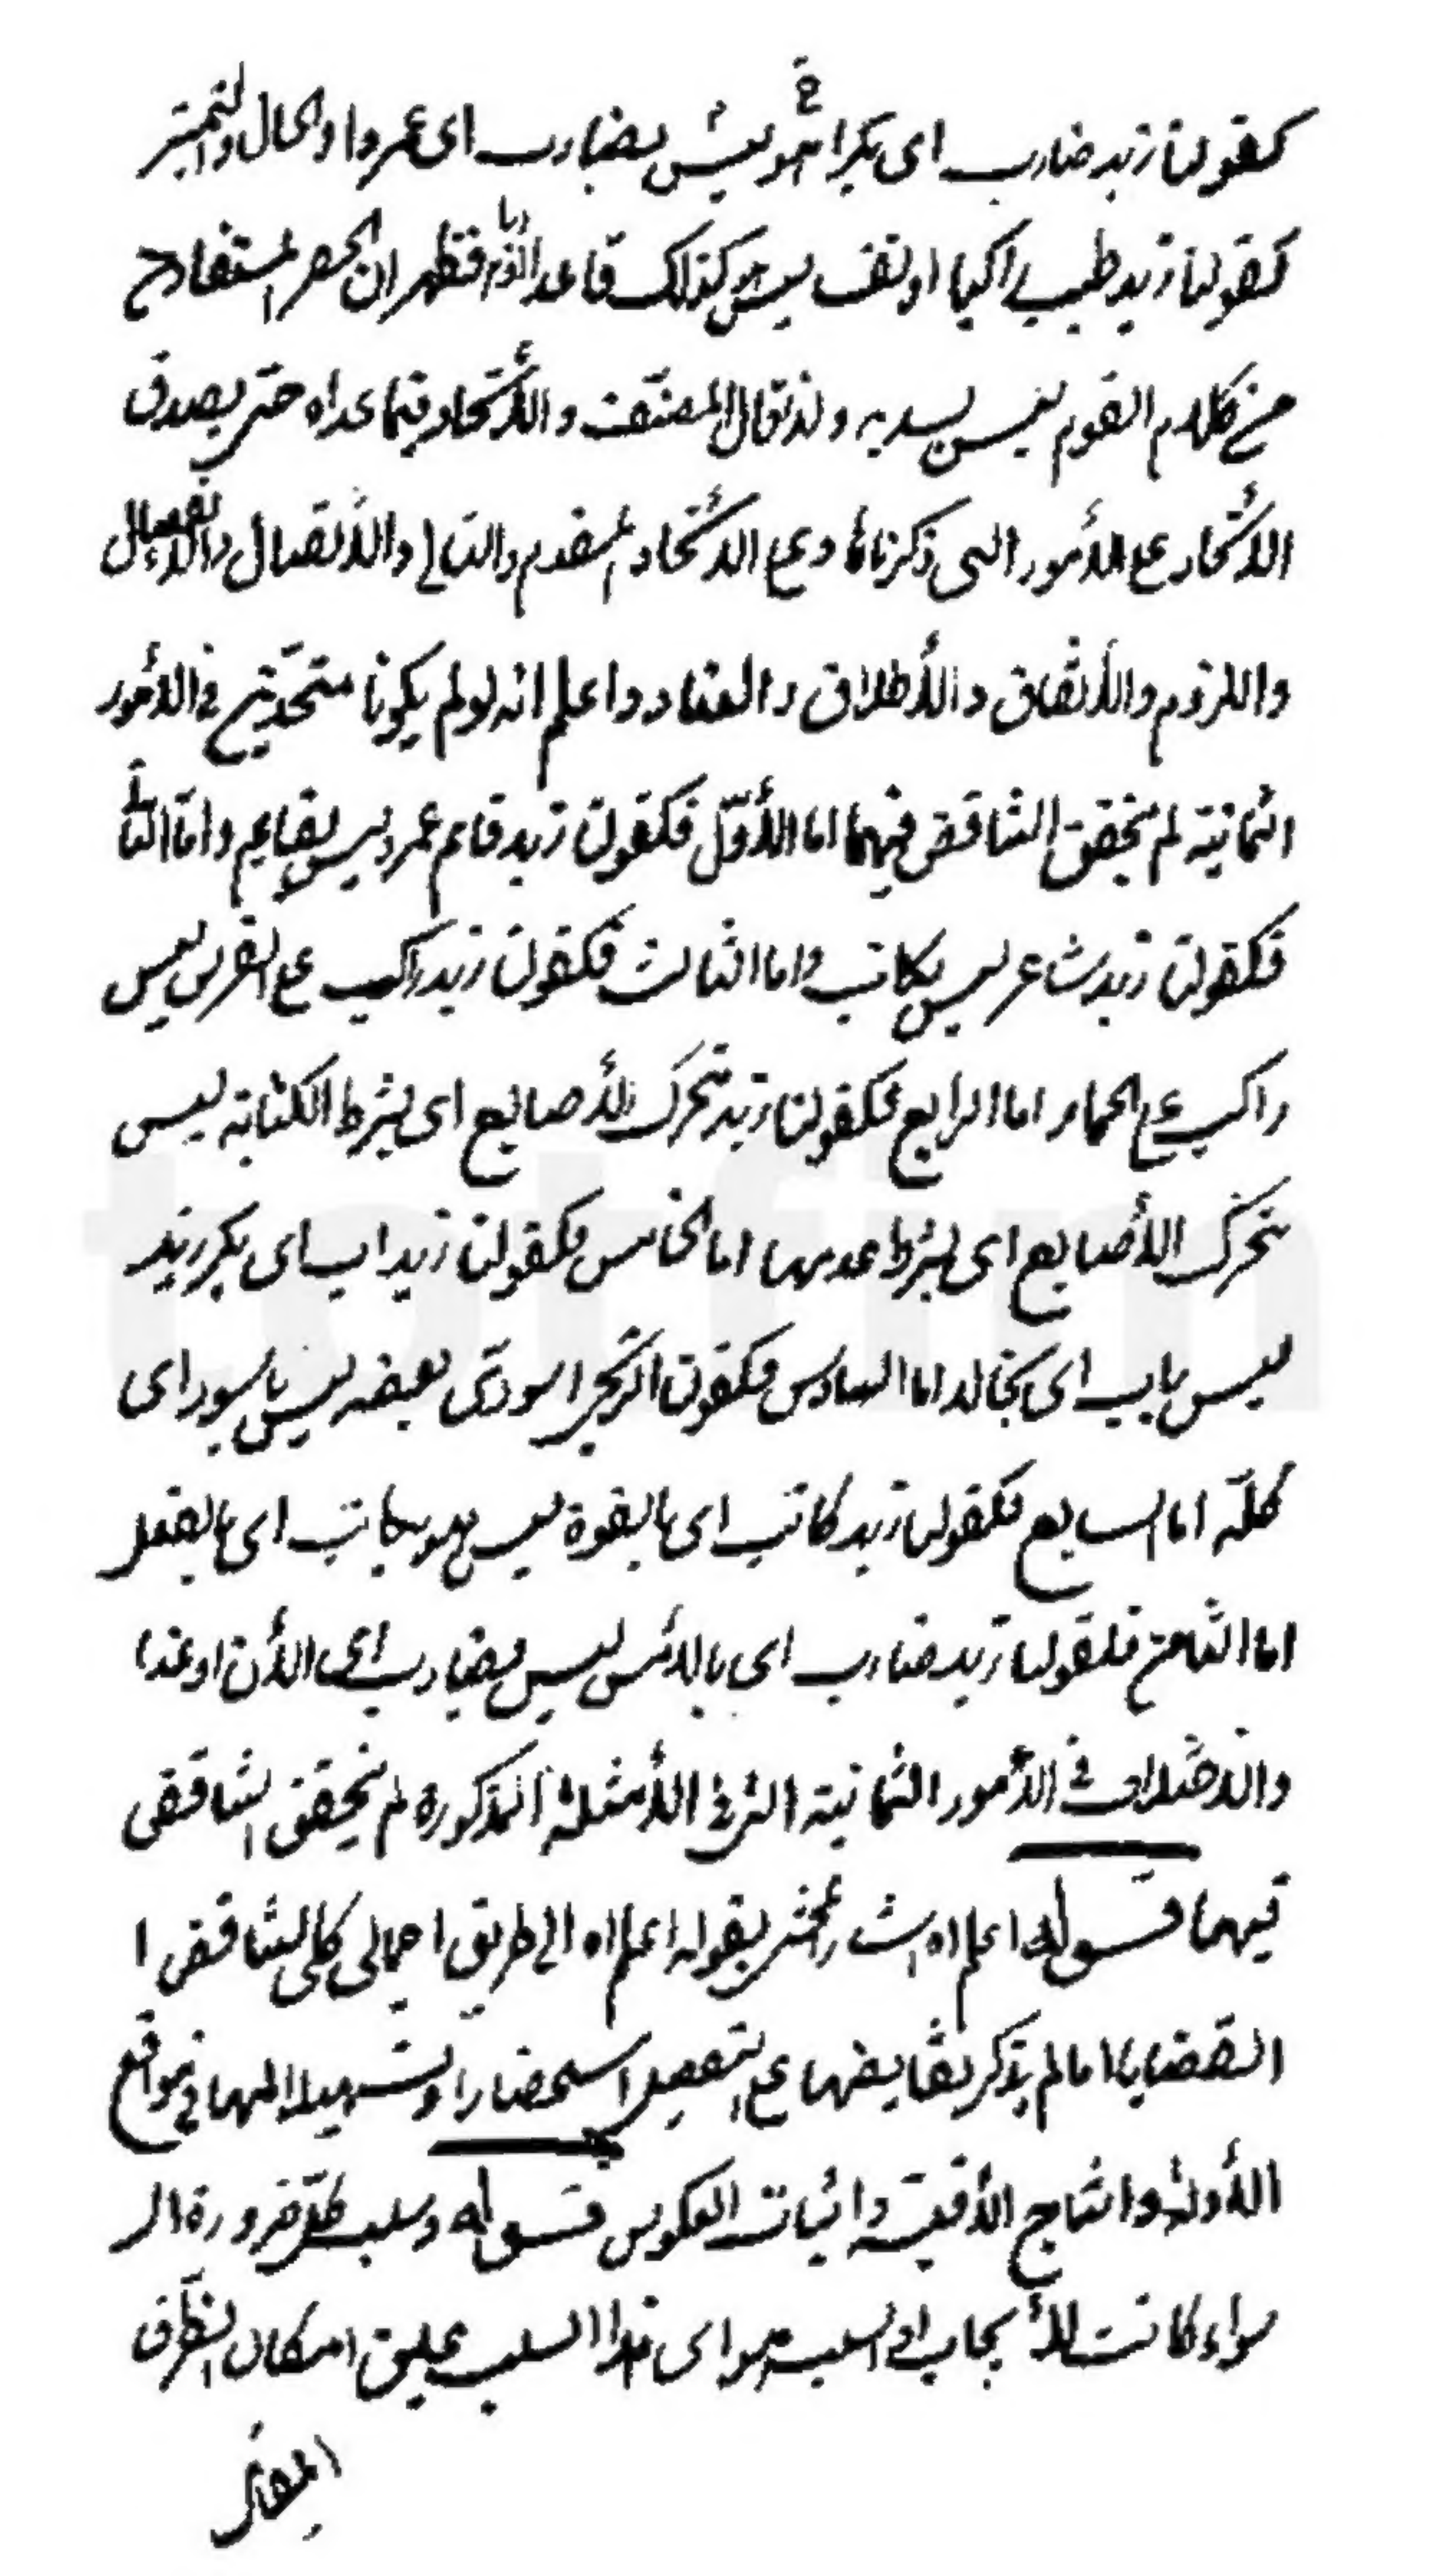 كقولنا زيد ضارب اى بكرا هو ليس بضارب اى عمروا والحال والتميز
كقولنا زيد طبيب راكبا او نفسا ليس هو كذلك قاعدا فظهر ان الحصر المستفاد
من كلام القوم ليس بسديد ولذا قال المصنف والاتحاد فيما عداه حتى يصدق
الاتحاد على الأمور التى ذكرناها وعلى الاتحاد المقدم والتالى والاتصال والانفصال
واللزوم والأتفاق والأطلاق والعناد واعلم انه لو لم يكونا متحدين فى الأمور
الثمانية لم يتحقق التناقض فيهما اما الأول فكقولنا زيد قائم عمرو ليس بقايم واما الثانى
فكقولنا زيد شاعر ليس بكاتب واما الثالث فكقولنا زيد راكب على الفرس ليس
راكب على الحمار اما الرابع فكقولنا زيد متحرك الأصابع اى بشرط الكتابة ليس
بتحرك الأصابع اى بشرط عدمها اما الخامس فكقولنا زيد اب اى بكر زيد
ليس باب اى بخالد اما السادس فكقولنا الزنجى اسود اى بعضه ليس باسود اى
كله اما السابع فكقولنا زيد كاتب اى بالقوة ليس هو بكاتب اى بالفعل
اما الثامن فلقولنا زيد ضارب اى بالأمس ليس بضارب اى الأن او غدا
والاختلاف فى الأمور الثمانية التى فى الأمثلة المذكورة لم يتحقق التناقض
فيهما قوله اعلم اه اشار المحشى بقوله اعلم اه الى طريق اجمالى كلى لتناقض ا
القضايا اما لم يذكر نقايضها على التفصيل استحضارا وتسهيلا لها فى مواقع
الأدلة وانتاج الأقيسة واثبات العكوس قوله وسلب كل ضرورة ال
سواء كانت للأيجاب او السلب هو اى هذا السلب عليق امكان الطرف
المقابل